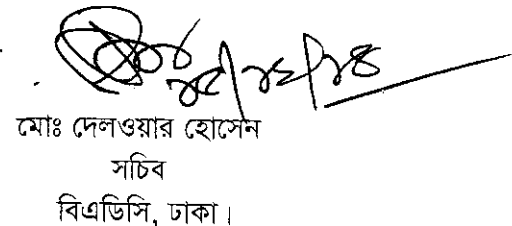 মোঃ দেলওয়ার হোসেন
সচিব
বিএডিসি, ঢাকা।